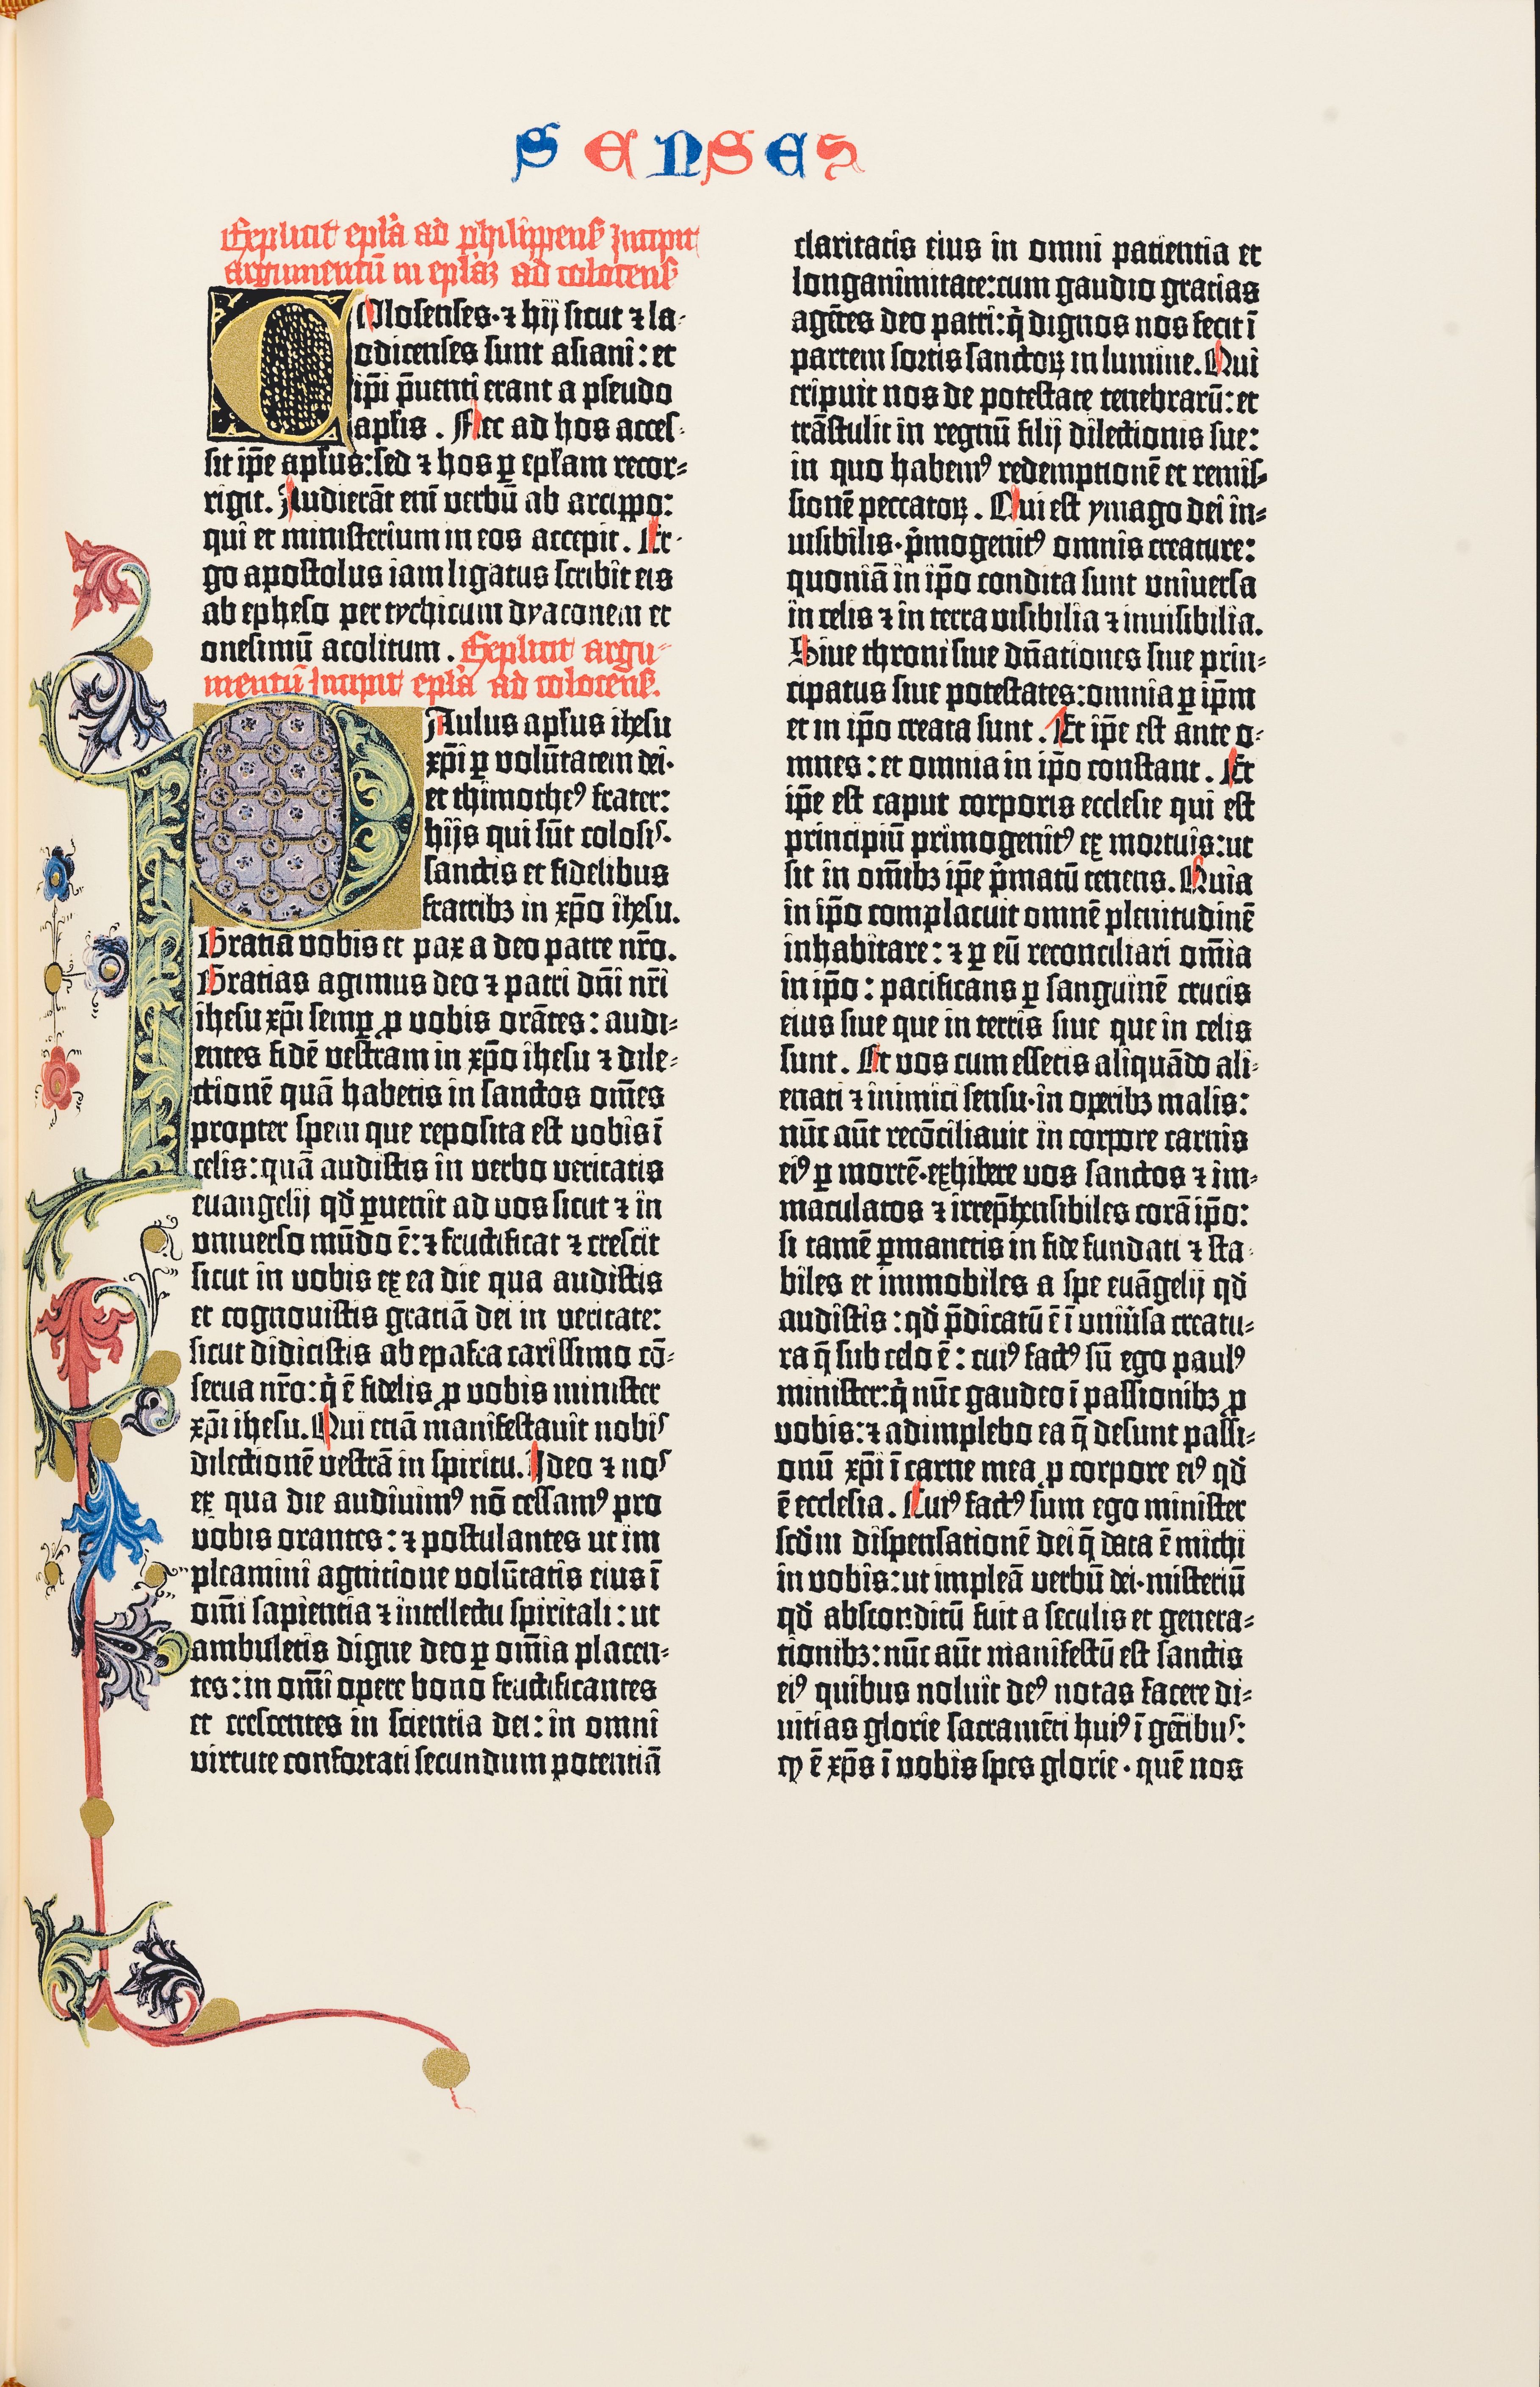 SENSES
Explicit epl̄a ad philippens̄ Incipit
argumentū in epl̄aʒ ad colocens̄
COlosenses·⁊ hij sicut ⁊ la-
odicenses sunt asiani: et
ip̄i p̄uenti erant a pseudo
apl̄is . Nec ad hos acces-
sit ip̄e apl̄us:sed ⁊ hos ꝑ epl̄am recor-
rigit. Audierāt enī verbū ab arcippo:
qui et ministerium in eos accepit. Er-
go apostolus iam ligatus scribit eis
ab epheso per tychicum dyaconem et
onesimū acolitum. Explicit argu-
mentū Incipit epl̄a ad colocens̄.
PAulus apl̄us ihesu
xp̄i ꝑ volūtatem dei·
et thimotheꝰ frater:
hijs qui sūt colosis·
sanctis et fidelibus
fratribꝫ in xp̄o ihesu.
Gratia vobis et pax a deo patre nr̄o.
Gratias agimus deo ⁊ patri dn̄i nr̄i
ihesu xp̄i semꝑ ꝓ vobis orātes: audi-
entes fidē vestram in xp̄o ihesu ⁊ dile-
ctionē quā habetis in sanctos om̄es
propter spem que reposita est vobis ī
celis: quā audistis in verbo veritatis
euangelij qd̄ ꝑuenit ad vos sicut ⁊ in
vniuerso mūdo ē: ⁊ fructificat ⁊ crescit
sicut in vobis ex ea die qua audistis
et cognouistis gratiā dei in veritate:
sicut didicistis ab epafra carissimo cō-
seruo nr̄o: q̄ ē fidelis ꝓ vobis minister
xp̄i ihesu. Qui etiā manifestauit nobis
dilectionē vestrā in spiritu. Ideo ⁊ nos
ex qua die audiuimꝰ nō cessamꝰ pro
vobis orantes: ⁊ postulantes ut im
pleamini agnitione volūtatis eius ī
om̄i sapientia ⁊ intellectu spiritali: ut
ambuletis digne deo ꝑ om̄ia placen-
tes: in om̄i opere bono fructificantes
et crescentes in scientia dei: in omni
virtute confortati secundum potentiā
claritatis eius in omni patientia et
longanimitate:cum gaudio gratias
agētes deo patri: q̄ dignos nos fecit ī
partem sortis sanctoꝝ in lumine. Qui
eripuit nos de potestate tenebrarū: et
trāstulit in regnū filij dilectionis sue:
in quo habemꝰ redemptionē et remis-
sionē peccatoꝝ . Qui est ymago dei in-
uisibilis· p̄mogenitꝰ omnis creature:
quoniā in ip̄o condita sunt vniuersa
in celis ⁊ in terra visibilia ⁊ inuisibilia.
Siue throni siue dn̄ationes siue prin-
cipatus siue potestates: omnia ꝑ ip̄m
et in ip̄o creata sunt . Et ip̄e est ante o-
mnes: et omnia in ip̄o constant . Et
ip̄e est caput corporis ecclesie qui est
principiū primogenitꝰ ex mortuis: ut
sit in om̄ibꝫ ip̄e p̄matū tenens. Quia
in ip̄o complacuit omnē plenitudinē
inhabitare: ⁊ ꝑ eū reconciliari om̄ia
in ip̄o: pacificans ꝑ sanguinē crucis
eius siue que in terris siue que in celis
sunt . Et vos cum essetis aliquādo ali-
enati ⁊ inimici sensu· in operibꝫ malis:
nūc aūt recōciliauit in corpore carnis
eiꝰ ꝑ mortē· exhibere vos sanctos ⁊ im-
maculatos ⁊ irrep̄hensibiles corā ip̄o:
si tamē ꝑmanetis in fide fundati ⁊ sta-
biles et immobiles a spe euāgelij qd̄
audistis: qd̄ p̄dicatū ē ī vniūsa creatu-
ra q̄ sub celo ē: cuiꝰ factꝰ sū ego paulꝰ
minister: q̄ nūc gaudeo ī passionibꝫ ꝓ
vobis: ⁊ adimplebo ea q̄ desunt passi-
onū xp̄i ī carne mea ꝓ corpore eiꝰ qd̄
ē ecclesia . Cuiꝰ factꝰ sum ego minister
scd̄m dispensationē dei q̄ data ē michi
in vobis: ut impleā verbū dei· misteriū
qd̄ absconditū fuit a seculis et genera-
tionibꝫ: nūc aūt manifestū est sanctis
eiꝰ quibus voluit deꝰ notas facere di-
uitias glorie sacramēti huiꝰ ī gētibus:
qd̄ ē xp̄s ī vobis spes glorie · quē nos